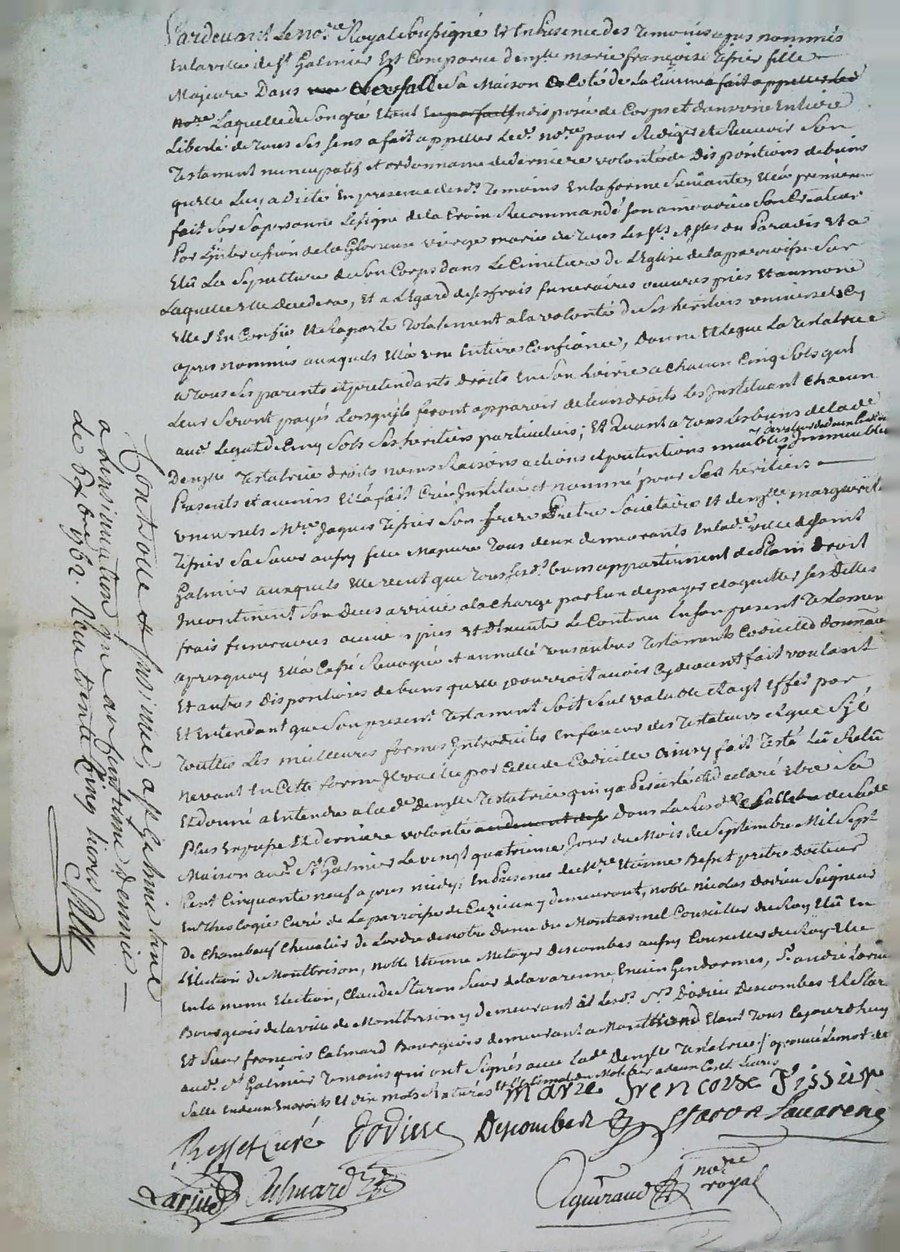 Pardevant Le no.re Royal soussigné Et En presence des Temoins apres nommés
En la ville de S.t Galmier Est Comparue dem.lle marie françoise Tissier fille
Majeure Dans sa Maison de Coté de La a fait appeller led.
no.re Laquelle de Son gré Etant indisposée de Corps et dans une Entiere
Liberté de Tous Ses Sens a fait appeller Led. no.re pour Rediger et Recevoir Son
Testament nuncupatif et ordonnance de derniere volonté de Dispositions de biens
qu'elle Luy a dicté En presence desd. Temoins En la forme Suivante, Ella premierem.
fait Sur Sa personne Le Signe de la Croix Recommandé Son ame a dieu Son Createur
Par L'intercession de la Glorieuse vierge marie de Tous Les S.ts du Paradis Et a
Elu La Sepulture de Son Corps dans Le Cimetiere De L'Eglise de la parroisse Sur
Laquelle Elle decedera, Et a L'Egard de Ses frais funeraires oeuvres pies Et aumone
Elle S'En Confie Et Raporte Totalement a la volonté de Ses heritiers universels Cy
apres nommés auxquels Ella une Entiere Confiance, Donne Et Legue La Testatrice
a Tous Ses parents Et pretendants Droits En Son hoirie a chacun Cinq Sols qui
Leur Seront payés Lorsqu'ils feront apparoir de Leurs Droits Les Instituant chacun
avec Legat de Cinq Sols Ses heritiers particuliers; Et Quant a Tous Les biens de la de
Dem.lle Testatrice droits noms Raisons actions Et pretentions meubles Immeubles
Presents et avenirs Ella fait Créé Institué et nommé pour Ses heritiers
universels M.re Jaques Tissier Son frere Prêtre Societaire Et dem.lle marguerite
Tissier Sa Soeur aussy fille Majeure Tous deux demeurants En lad. ville de Saint
Galmier auxquels Elle veut que Tous Sesd. biens appartiennent de Plein Droit
Incontinent Son Deces arrivé a la charge par Eux de payer et acquitter Ses Dettes
frais funeraires oeuvres pies Et D'Executer Le Contenu En Son present Testament
aprez quoy Ella Cassé Revoqué et annullé tous autres Testaments Codicilles Donnation
Et autres Dispositions de biens qu'elle pourroit avoir Cy devant fait voulant
Et Entendant que Son present Testament Soit Seul valable Et ayt Effet par
Touttes Les meilleures formes Introduites En faveur des Testateurs Et que S'jl
ne vaut En Cette forme Il vaille par Celle de Codicille Ainsy fait Testé Lu Relu
Et donné a Entendre a la de Dem.lle Testatrice qui y a Persisté Et declaré Etre Sa
Plus Expresse Et derniere volonté Dans La de Sade
Maison aud. S.t Galmier Le vingt quatrieme Jour du Mois de Septembre Mil Sept
Cent Cinquante neuf apres midy; En Presence de M.re Etienne Besset prêtre Docteur
En Theologie Curé de La parroisse de Cuzieu y demeurant, noble Nicolas Dodieu Seigneur
De Chambeuf Chevalier de Lordre de notre dame du Montcarmel Conseiller du Roy Elu En
L'Election de Montbrison, noble Etienne Metayer Descombes aussy Conseiller du Roy Elu
En la meme Election, Claude Staron Sieur de Lavarenne Encien Gendarmes, S.r andré Larue
Bourgeois de la ville de Montbrison y demeurant Et Lesd. S.rs Dodieu Descombes Et Staron
Et Sieur françois Calmard Bourgeois demeurant a Etant Tous Cejourd'huy
aud. S.t Galmier Temoins qui ont Signés avec Lade Dem.lle Testatrice
Marie Francoise Tissier
Besset Curé Dodieu Descombes Staron Lavarene
Larue Calmard
Aguiraud no.re royal
Controllé et insinué, a S.t Galmier
a L'insinuation
de 8bre 1762. Reçu trente cinq livres